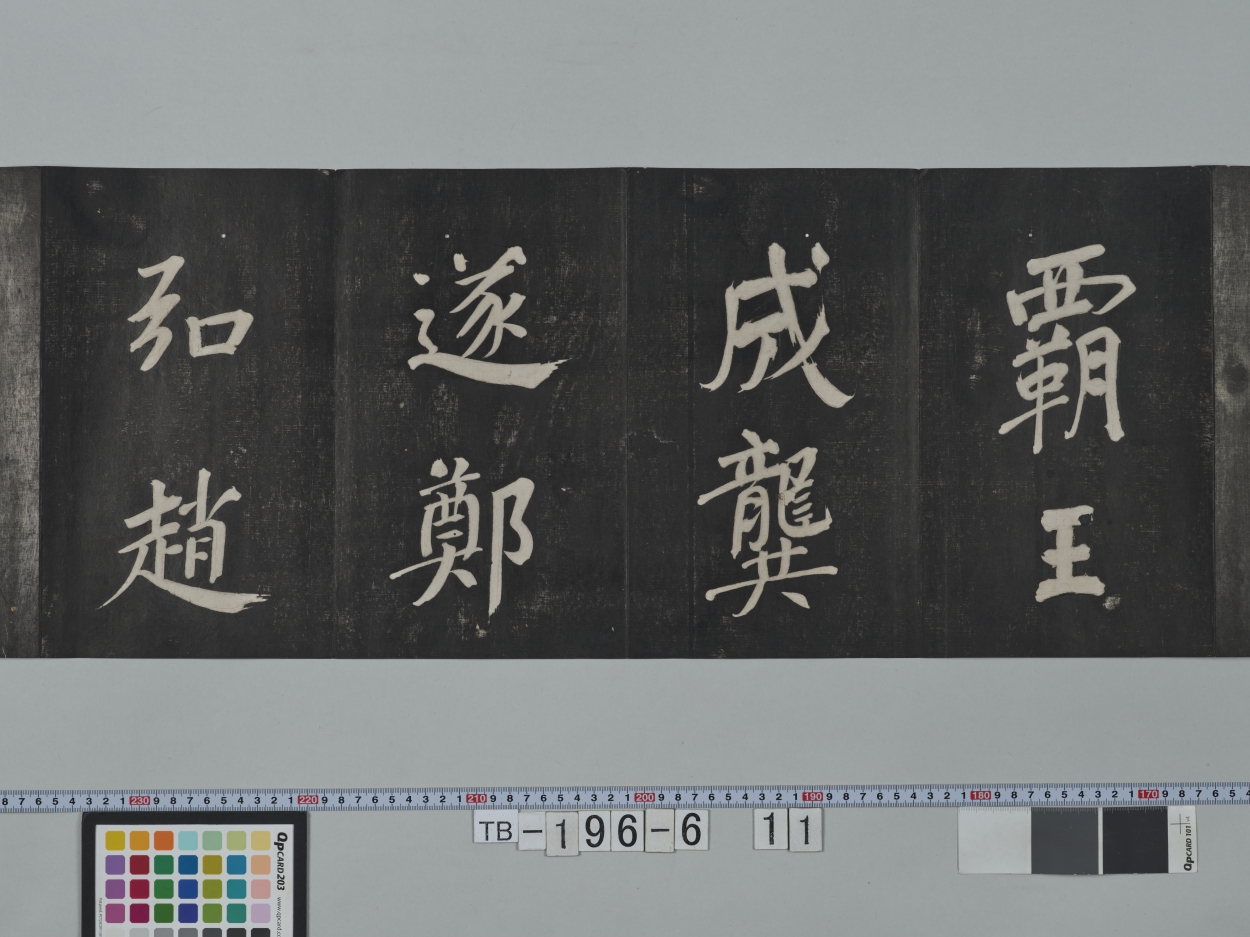 覇王
成龔
遂鄭
弘趙
8 7 6 5 4 3 2 1 230 9 8 7 6 5 4 3 2 1 220 9 8 7 6 5 4 3 2 1 210 9 8 7 6 5 4 3 2 1 200 9 8 7 6 5 4 3 2 1 190 9 8 7 6 5 4 3 2 1 180 9 8 7 6 5 4 3 2 1 170 9 8 7 6 5
TB-196-6 11
QPCARD 203
QPCARD 101